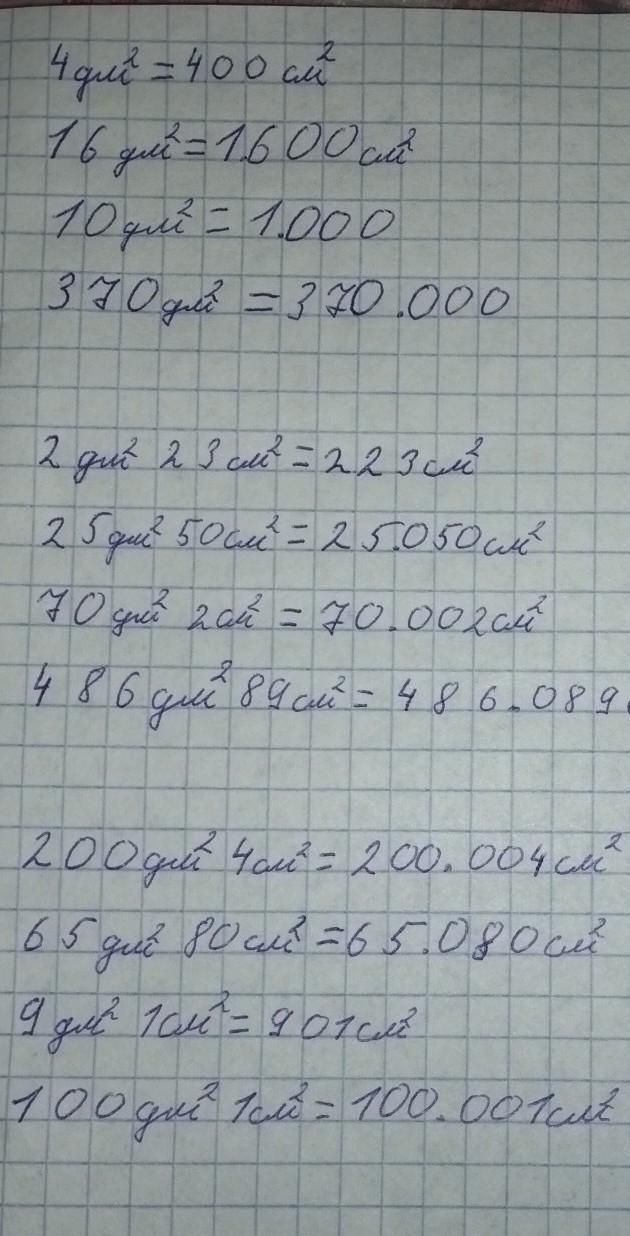 4 дм² = 400 см²
16 дм² = 1.600 см²
10 дм² = 1.000
370 дм² = 370.000
2 дм² 23 см² = 223 см²
25 дм² 50 см² = 25.050 см²
70 дм² 2 см² = 70.002 см²
486 дм² 89 см² = 486.089
200 дм² 4 см² = 200.004 см²
65 дм² 80 см² = 65.080 см²
9 дм² 1 см² = 901 см²
100 дм² 1 см² = 100.001 см²